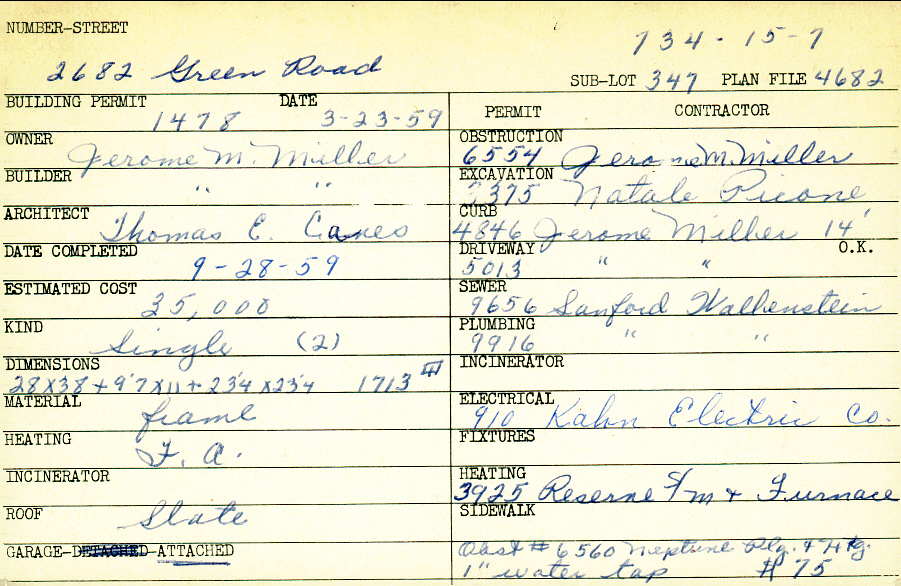 NUMBER-STREET
734-15-7
2682 Green Road
SUB-LOT 347 PLAN FILE 4682
BUILDING PERMIT DATE
1478 3-23-59
OWNER
Jerome M. Miller
BUILDER
" "
ARCHITECT
Thomas E.
DATE COMPLETED
9-28-59
ESTIMATED COST
35,000
KIND
Single (2)
DIMENSIONS
28 X 38 + 9'7 X 11 + 23'4 X 23'4 1713
MATERIAL
frame
HEATING
F. A.
INCINERATOR
ROOF
Slate
GARAGE-DETACHED-ATTACHED
PERMIT CONTRACTOR
OBSTRUCTION
6554 Jerome M. Miller
EXCAVATION
2375 Natale Picone
CURB
4846 Jerome Miller 14'
DRIVEWAY O.K.
5013 " "
SEWER
9656 Sanford Wallenstein
PLUMBING
9916 " "
INCINERATOR
ELECTRICAL
910 Kahn Electric Co.
FIXTURES
HEATING
3925 Reserve S/m + Furnace
SIDEWALK
Obst # 6560 Neptune Plg. & Htg.
1" water tap # 75